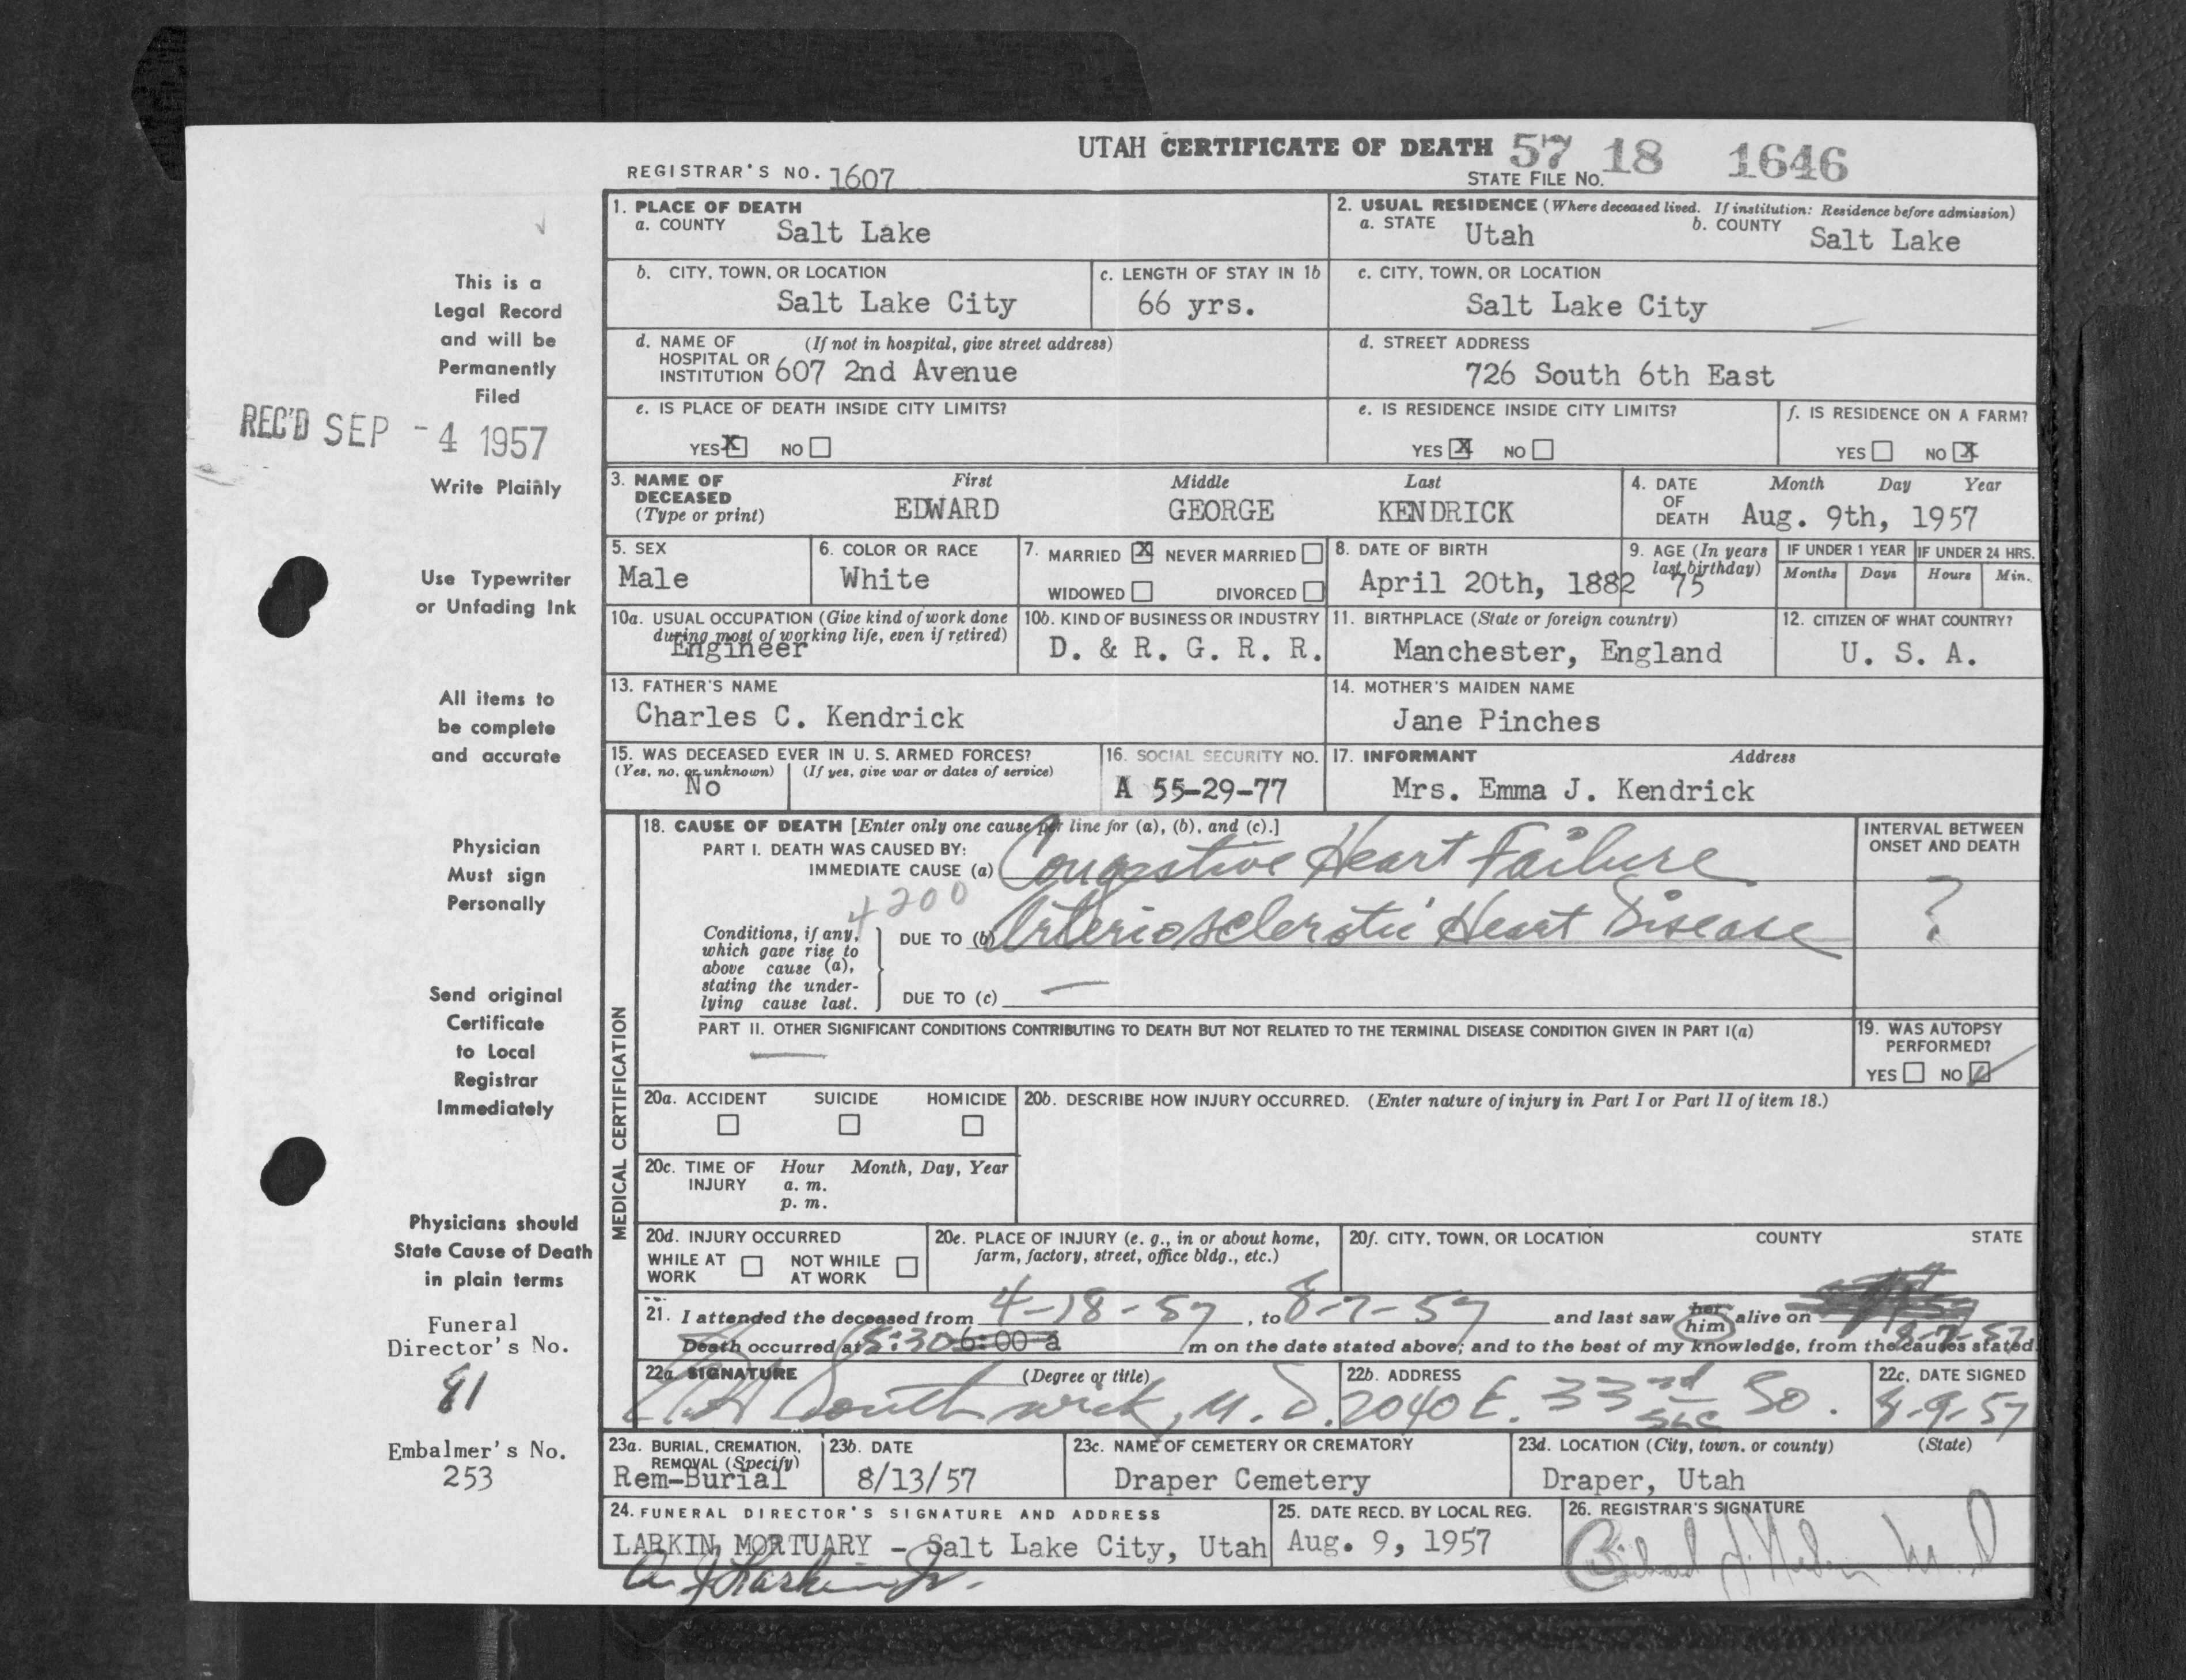 UTAH CERTIFICATE OF DEATH 57 18 1646
REGISTRAR'S NO. 1607
STATE FILE NO.
1. PLACE OF DEATH
a. COUNTY Salt Lake
2. USUAL RESIDENCE (Where deceased lived. If institution: Residence before admission)
a. STATE Utah b. COUNTY Salt Lake
b. CITY, TOWN, OR LOCATION
Salt Lake City
c. LENGTH OF STAY IN 1b
66 yrs.
c. CITY, TOWN, OR LOCATION
Salt Lake City
d. NAME OF HOSPITAL OR INSTITUTION (If not in hospital, give street address)
607 2nd Avenue
d. STREET ADDRESS
726 South 6th East
e. IS PLACE OF DEATH INSIDE CITY LIMITS?
YES X NO
e. IS RESIDENCE INSIDE CITY LIMITS?
YES X NO
f. IS RESIDENCE ON A FARM?
YES NO X
3. NAME OF DECEASED (Type or print)
First Middle Last
EDWARD GEORGE KENDRICK
4. DATE OF DEATH Month Day Year
Aug. 9th, 1957
5. SEX
Male
6. COLOR OR RACE
White
7. MARRIED X NEVER MARRIED
WIDOWED DIVORCED
8. DATE OF BIRTH
April 20th, 1882
9. AGE (In years last birthday)
75
IF UNDER 1 YEAR
Months Days
IF UNDER 24 HRS.
Hours Min.
10a. USUAL OCCUPATION (Give kind of work done during most of working life, even if retired)
Engineer
10b. KIND OF BUSINESS OR INDUSTRY
D. & R. G. R. R.
11. BIRTHPLACE (State or foreign country)
Manchester, England
12. CITIZEN OF WHAT COUNTRY?
U. S. A.
13. FATHER'S NAME
Charles C. Kendrick
14. MOTHER'S MAIDEN NAME
Jane Pinches
15. WAS DECEASED EVER IN U. S. ARMED FORCES?
(Yes, no, or unknown) (If yes, give war or dates of service)
No
16. SOCIAL SECURITY NO.
A 55-29-77
17. INFORMANT Address
Mrs. Emma J. Kendrick
MEDICAL CERTIFICATION
18. CAUSE OF DEATH [Enter only one cause per line for (a), (b), and (c).]
PART I. DEATH WAS CAUSED BY:
IMMEDIATE CAUSE (a) Congestive Heart Failure
4200
Conditions, if any, which gave rise to above cause (a), stating the underlying cause last.
DUE TO (b) Arteriosclerotic Heart Disease
DUE TO (c) —
INTERVAL BETWEEN ONSET AND DEATH
?
PART II. OTHER SIGNIFICANT CONDITIONS CONTRIBUTING TO DEATH BUT NOT RELATED TO THE TERMINAL DISEASE CONDITION GIVEN IN PART I(a)
—
19. WAS AUTOPSY PERFORMED?
YES NO ✓
20a. ACCIDENT SUICIDE HOMICIDE
20b. DESCRIBE HOW INJURY OCCURRED. (Enter nature of injury in Part I or Part II of item 18.)
20c. TIME OF INJURY Hour Month, Day, Year
a. m.
p. m.
20d. INJURY OCCURRED
WHILE AT WORK NOT WHILE AT WORK
20e. PLACE OF INJURY (e. g., in or about home, farm, factory, street, office bldg., etc.)
20f. CITY, TOWN, OR LOCATION COUNTY STATE
21. I attended the deceased from 4-18-57, to 8-7-57 and last saw her him alive on 8-7-57
Death occurred at 5:30 6:00 a m on the date stated above; and to the best of my knowledge, from the causes stated.
22a. SIGNATURE (Degree or title)
Southwick, M. D.
22b. ADDRESS
2040 E. 33rd So. SLC
22c. DATE SIGNED
8-9-57
23a. BURIAL, CREMATION, REMOVAL (Specify)
Rem-Burial
23b. DATE
8/13/57
23c. NAME OF CEMETERY OR CREMATORY
Draper Cemetery
23d. LOCATION (City, town, or county) (State)
Draper, Utah
24. FUNERAL DIRECTOR'S SIGNATURE AND ADDRESS
LARKIN MORTUARY - Salt Lake City, Utah
25. DATE RECD. BY LOCAL REG.
Aug. 9, 1957
26. REGISTRAR'S SIGNATURE
This is a
Legal Record
and will be
Permanently
Filed
REC'D SEP -4 1957
Write Plainly
Use Typewriter
or Unfading Ink
All items to
be complete
and accurate
Physician
Must sign
Personally
Send original
Certificate
to Local
Registrar
Immediately
Physicians should
State Cause of Death
in plain terms
Funeral
Director's No.
81
Embalmer's No.
253